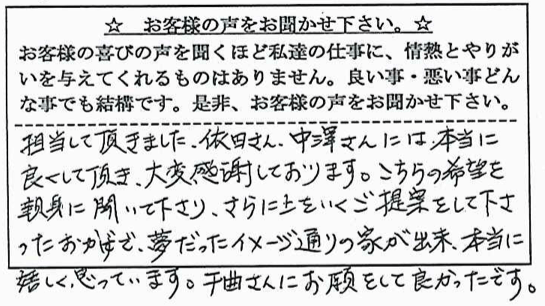 ☆ お客様の声をお聞かせ下さい。☆
お客様の喜びの声を聞くほど私達の仕事に、情熱とやりが
いを与えてくれるものはありません。良い事・悪い事どん
な事でも結構です。是非、お客様の声をお聞かせ下さい。
担当して頂きました、依田さん、中澤さんには、本当に
良くして頂き、大変感謝しております。こちらの希望を
親身に聞いて下さり、さらに上をいくご提案をして下さ
ったおかげで、夢だったイメージ通りの家が出来、本当に
嬉しく思っています。千曲さんにお願をして良かったです。